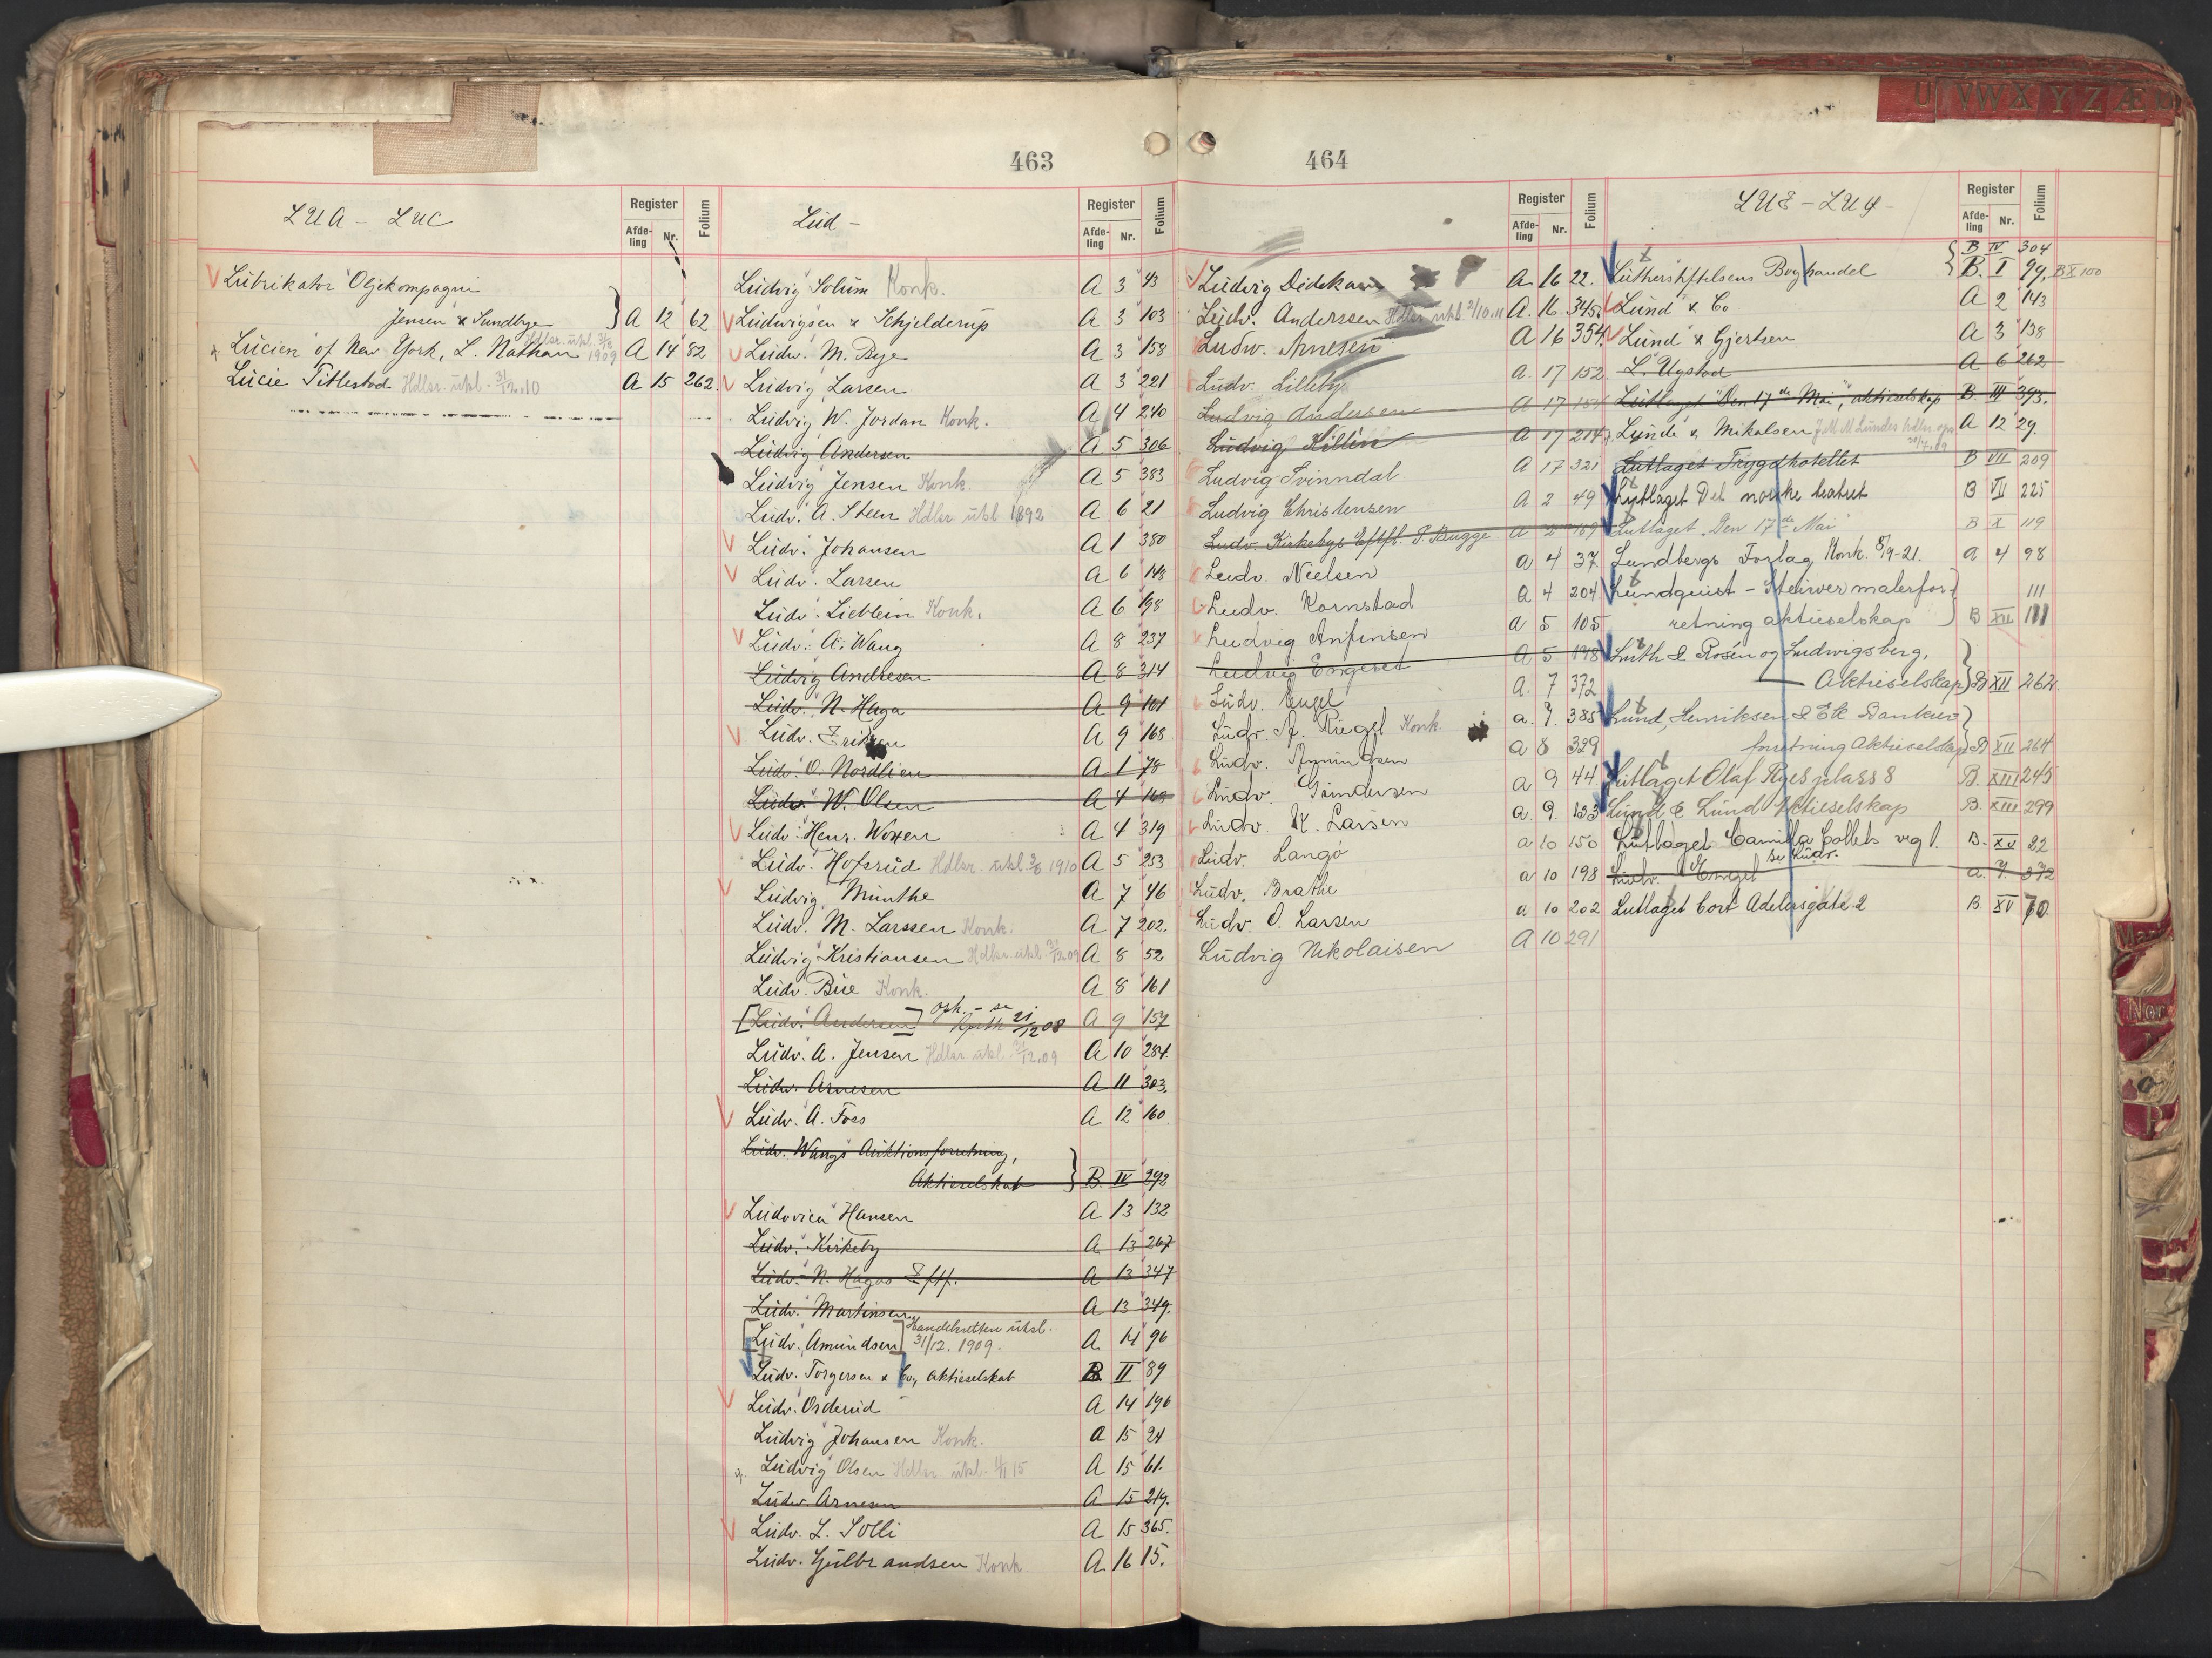 U V W X Y Z Æ
463
LUA - LUC
Register
Afde-ling Nr. Folium
Lubrikator Oljekompagni
Jensen & Sundbye } A 12 62
Lucien of New York, L. Nathan Hdlsr. utsl. 31/8 1909 A 14 82
Lucie Tittestad Hdlsr. utsl. 31/12.10 A 15 262.
Lud -
Register
Afde-ling Nr. Folium
Ludvig Solum Konk. A 3 43
Ludwigsen & Schjelderup A 3 103
Ludv. M. Bye A 3 158
Ludvig Larsen A 3 221
Ludvig W. Jordan Konk. A 4 240
Ludvig Andersen A 5 306
Ludvig Jensen Konk. A 5 383
Ludv. A. Steen Hdlsr utsl 1892 A 6 21
Ludv. Johansen A 1 380
Ludv. Larsen A 6 148
Ludv. Lieblein Konk. A 6 198
Ludv. A. Wang A 8 237
Ludvig Andresen A 8 314
Ludv. N. Haga A 9 101
Ludv. Eriksen A 9 168
Ludv. O. Nordlien A 1 78
Ludv. W. Olsen A 4 168
Ludv. Henr. Woxen A 4 319
Ludv. Hofsrud Hdlsr. utsl. 1910 A 5 253
Ludvig Munthe A 7 46
Ludv. M. Larssen Konk. A 7 202.
Ludvig Kristiansen Hdlsr. utsl. 31/12.09 A 8 52
Ludv. Bue Konk. A 8 161
[Ludv. Andersen] oph. - se 21/12 08 A 9 157
Ludv. A. Jensen Hdlsr utsl. 31/12.09 A 10 284.
Ludv. Arnesen A 11 303.
Ludv. A. Foss A 12 160
Ludv. Wangs Auktionsforretning,
Aktieselskab } B. IV 292
Ludovica Hansen A 13 132
Ludv. Kirkeby A 13 267
Ludv. N. Hagas Eftf. A 13 347
Ludv. Martinsen A 13 349.
[Ludv. Amundsen] Handelsretten utsl. 31/12. 1909. A 14 96
Ludv. Torgersen & Co, Aktieselskab B II 89
Ludv. Orderud A 14 196
Ludvig Johansen Konk. A 15 24
Ludvig Olsen Hdlsr utsl. 4/1 15 A 15 61.
Ludv. Arnesen A 15 219.
Ludv. L. Solli A 15 365.
Ludv. Gulbrandsen Konk A 16 15.
464
Register
Afde-ling Nr. Folium
Ludvig Didrkson A. 16 22.
Ludv. Anderssen Hdlsr utsl 2/10.11 A. 16 345.
Ludw. Arnesen A 16 354.
Ludv. Lilleby A. 17 152
Ludvig Andersen A 17 154
Ludvig Killin A 17 214
Ludvig Svinndal A 17 321
Ludvig Christensen A 2 49
Ludv. Kirkebys Eftfl. P. Bugge A 2 169
Ludv. Nielsen A 4 37
Ludv. Kornstad A 4 204
Ludvig Anfinsen A 5 105
Ludvig Engeset A 5 148
Ludv. Engel A. 7 372
Ludv. A. Riegel Konk. a. 7. 385
Ludv. Amundsen a 8 329
Ludv. Gundersen a 9 44
Ludv. K. Larsen a. 9. 153
Ludv. Langö a 10 150
Ludv. Brathe a 10 198
Ludv. O. Larsen a 10 202
Ludvig Nikolaisen A 10 291
LUE - LUY -
Register
Afde-ling Nr. Folium
B IV 304
Lutherstiftelsens Boghandel { B. I 99, B X 100
Lund & Co A 2 143
Lund & Gjertsen A 3 138
L. Ugstad A 6 262
Lutlaget "Den 17de Mai", aktieselskap B. III 393.
Lunde & Mikalsen J.M.M. Lundes hdlsr. op. 20/7.09 A 12 29.
Lutlaget Trygdhotellet B VII 209
Lutlaget Det norske teatret B VII 225
Lutlaget "Den 17de Mai" B X 119
Lundbergs Forlag Konk. 8/9-21. a 4 98
Lundquist - Steiwer malerfor- } 111
retning aktieselskap B XII 111
Luth & Rosén og Ludwigsberg,
Aktieselskap } B XII 262.
Lund, Henriksen & Ek Bankier
forretning Aktieselskap } B XII 264
Lutlaget Olaf Ryes plass 8 B. XIII 245
Lund & Lund Aktieselskap B. XIII 299
Lutlaget Camilla Colletts veg 1. B. XV 22
Ludv. Engel se Ludv. a. 7 372
Lutlaget Cort Adelersgate 2 B XV 70